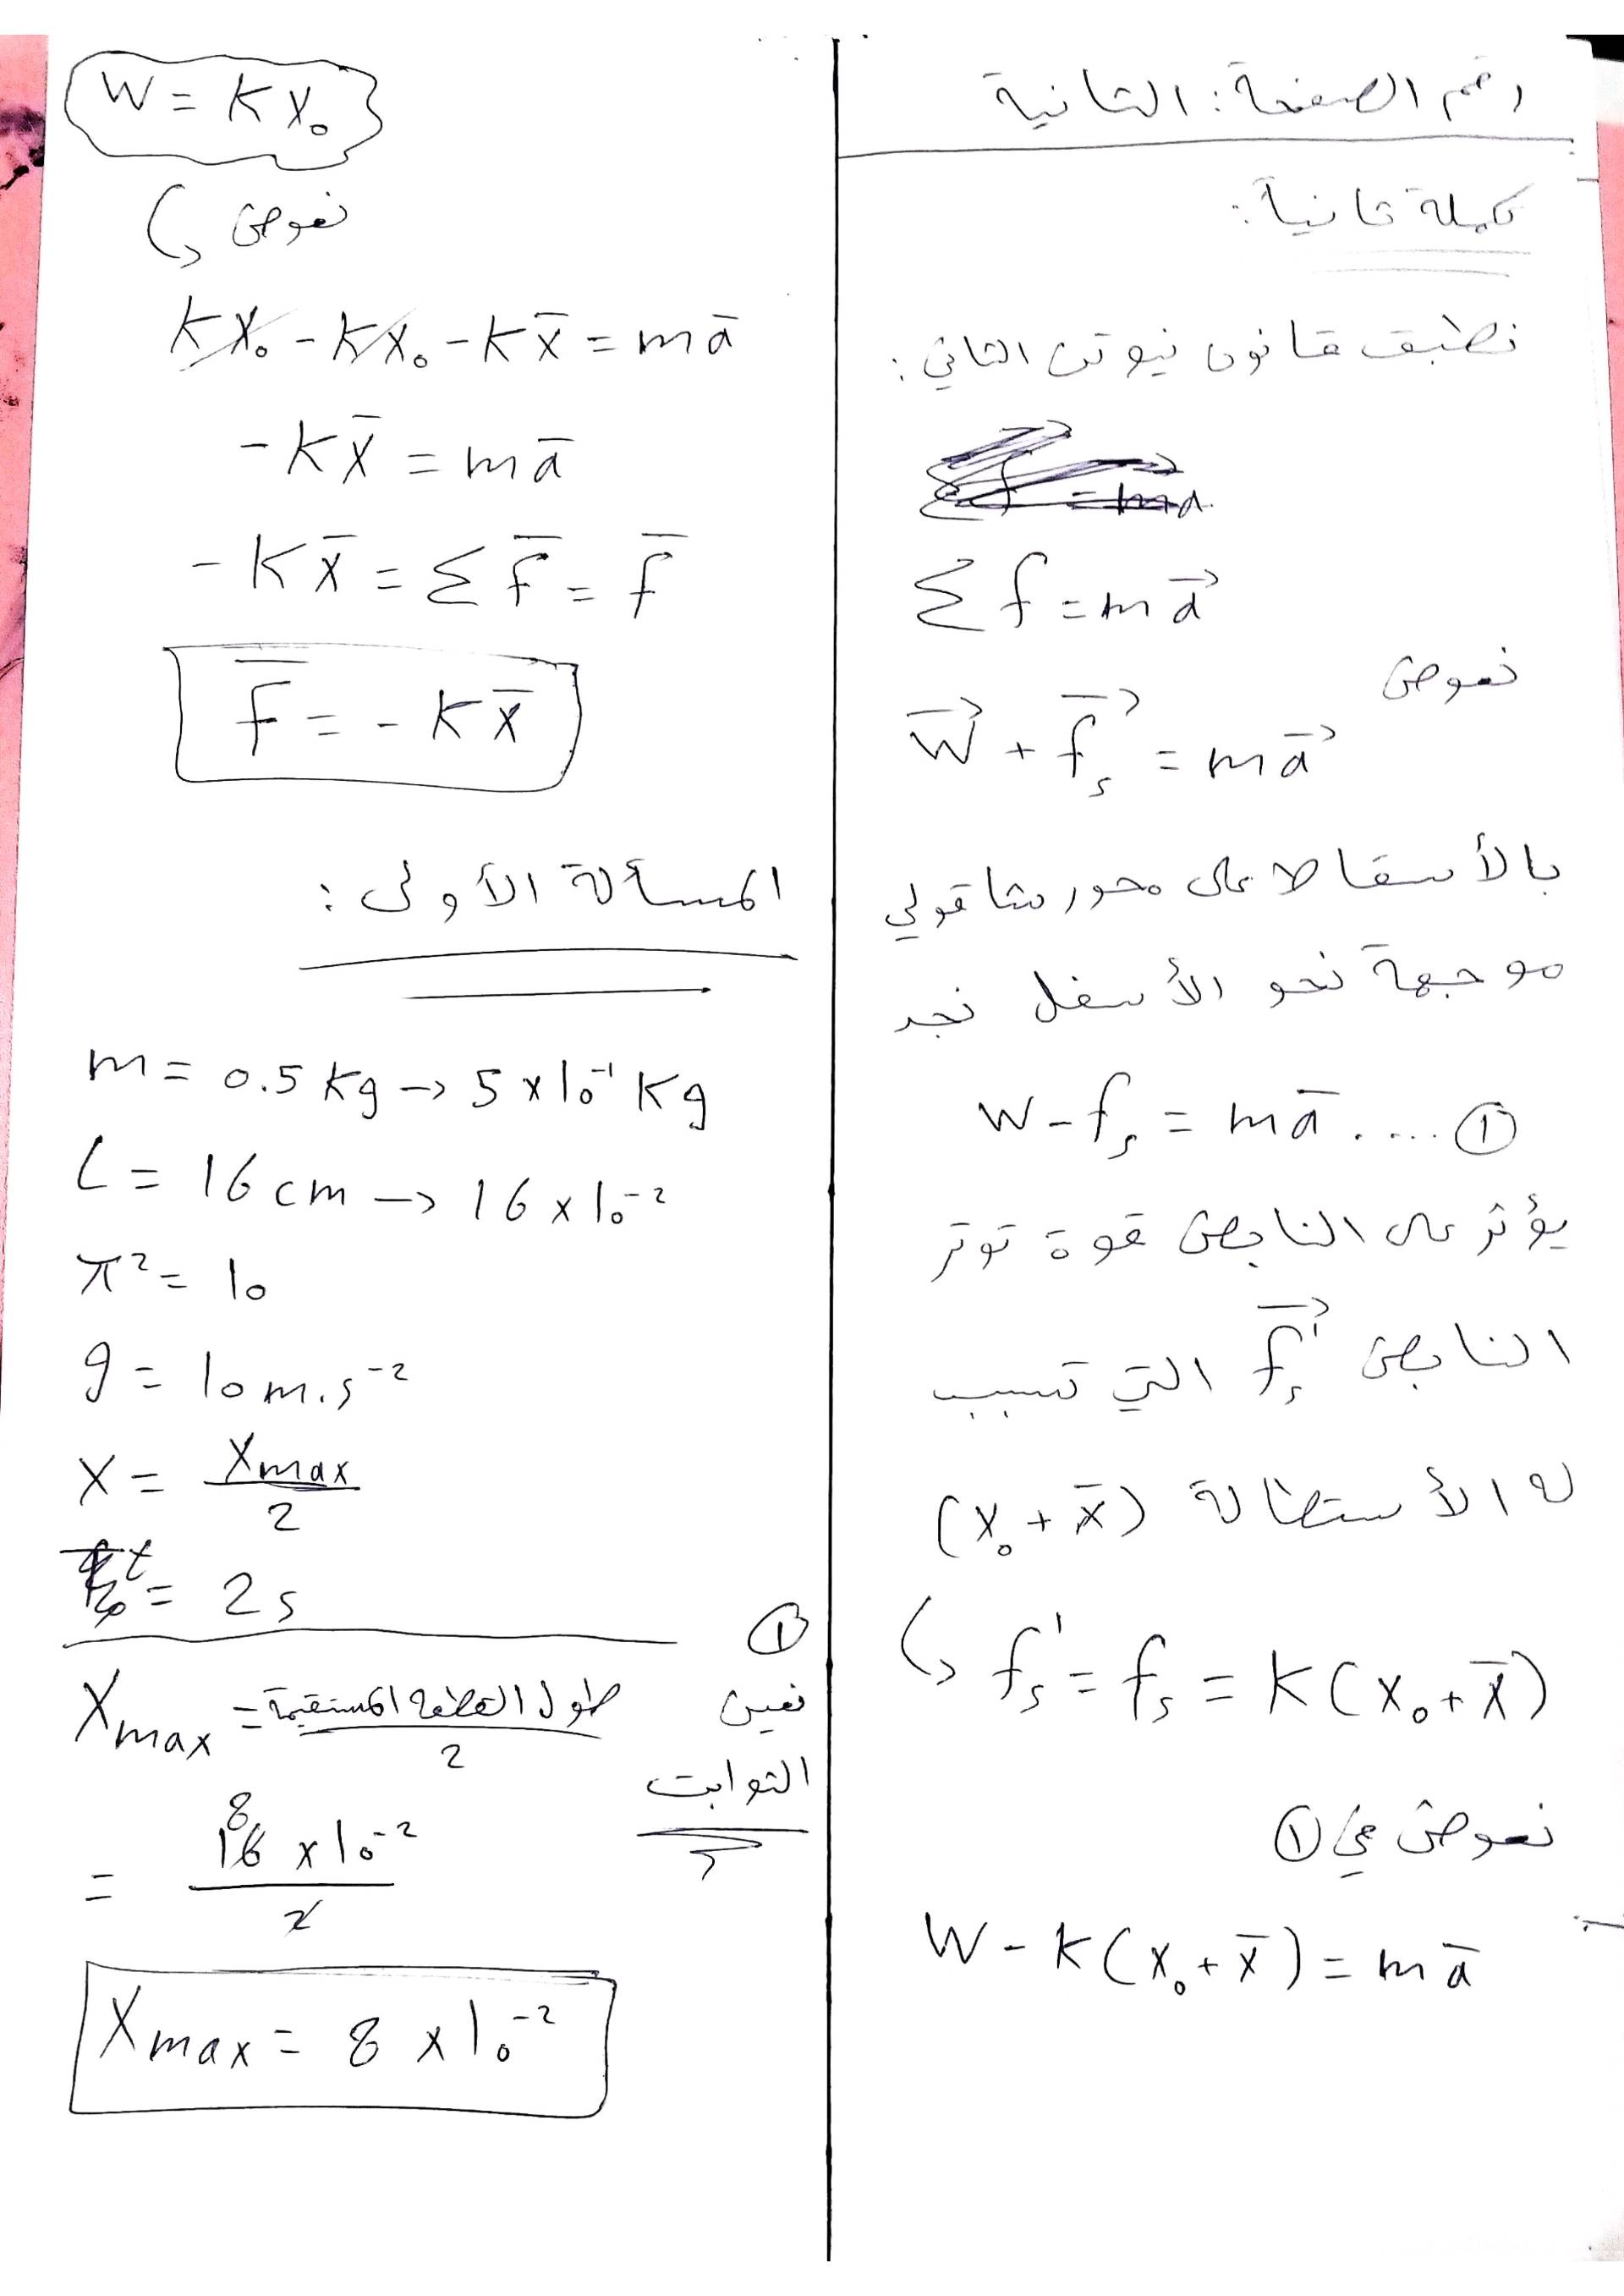 رقم الصفحة: الثانية
تكملة ثانياً:
نطبق قانون نيوتن الثاني:
Σ f = m a⃗
نعوض
W⃗ + f⃗ₛ = m a⃗
بالأسقاط على محور شاقولي
موجهة نحو الأسفل نجد
W - fₛ = m a̅ .... ①
يؤثر على النابض قوة توتر
النابض f⃗ₛ' التي تسبب
له الأستطالة (X₀ + x̅)
fₛ' = fₛ = K(X₀ + x̅)
نعوض في ①
W - K(X₀ + x̅) = m a̅
W = K X₀
نعوض
K X₀ - K X₀ - K x̅ = m a̅
- K x̅ = m a̅
- K x̅ = Σ F̅ = F̅
F̅ = - K x̅
المسألة الأولى:
m = 0.5 Kg → 5 × 10⁻¹ Kg
L = 16 cm → 16 × 10⁻²
π² = 10
g = 10 m.s⁻²
X = Xmax / 2
t = 2 s
①
نعين
الثوابت
Xmax = طول القطعة المستقيمة / 2
= 16 × 10⁻² / 2
8
Xmax = 8 × 10⁻²